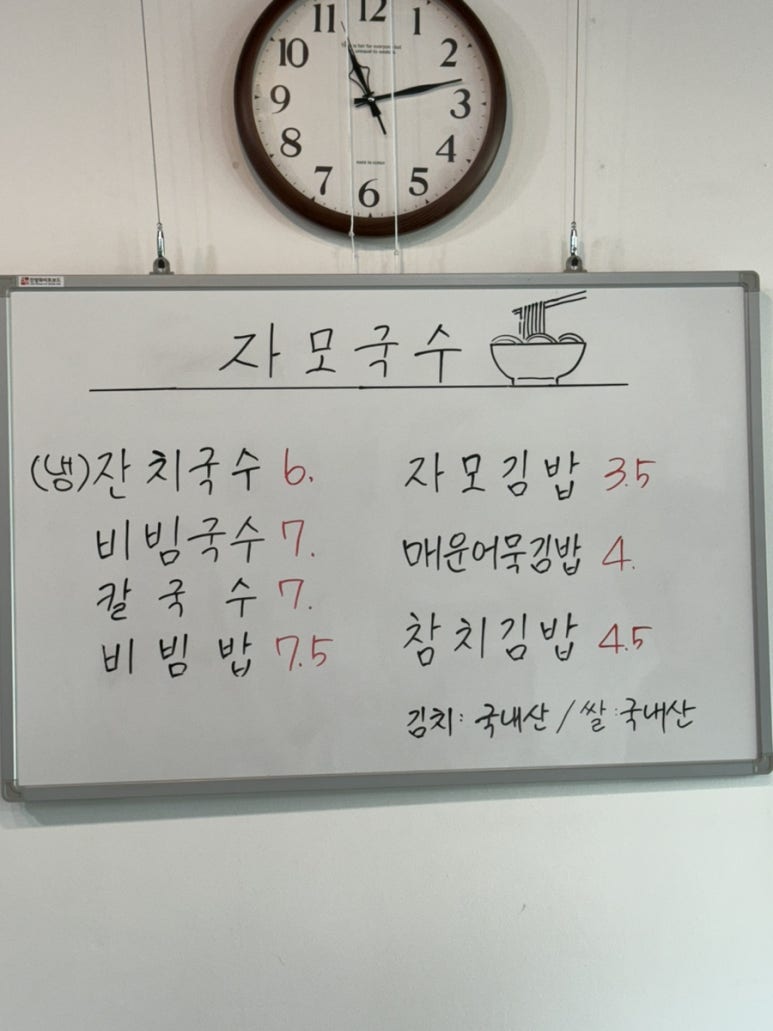 11 12 1
10 2
9 3
8 4
7 6 5
MADE IN KOREA
자모국수
(냉)잔치국수 6.
비빔국수 7.
칼국수 7.
비빔밥 7.5
자모김밥 3.5
매운어묵김밥 4.
참치김밥 4.5
김치: 국내산 / 쌀:국내산